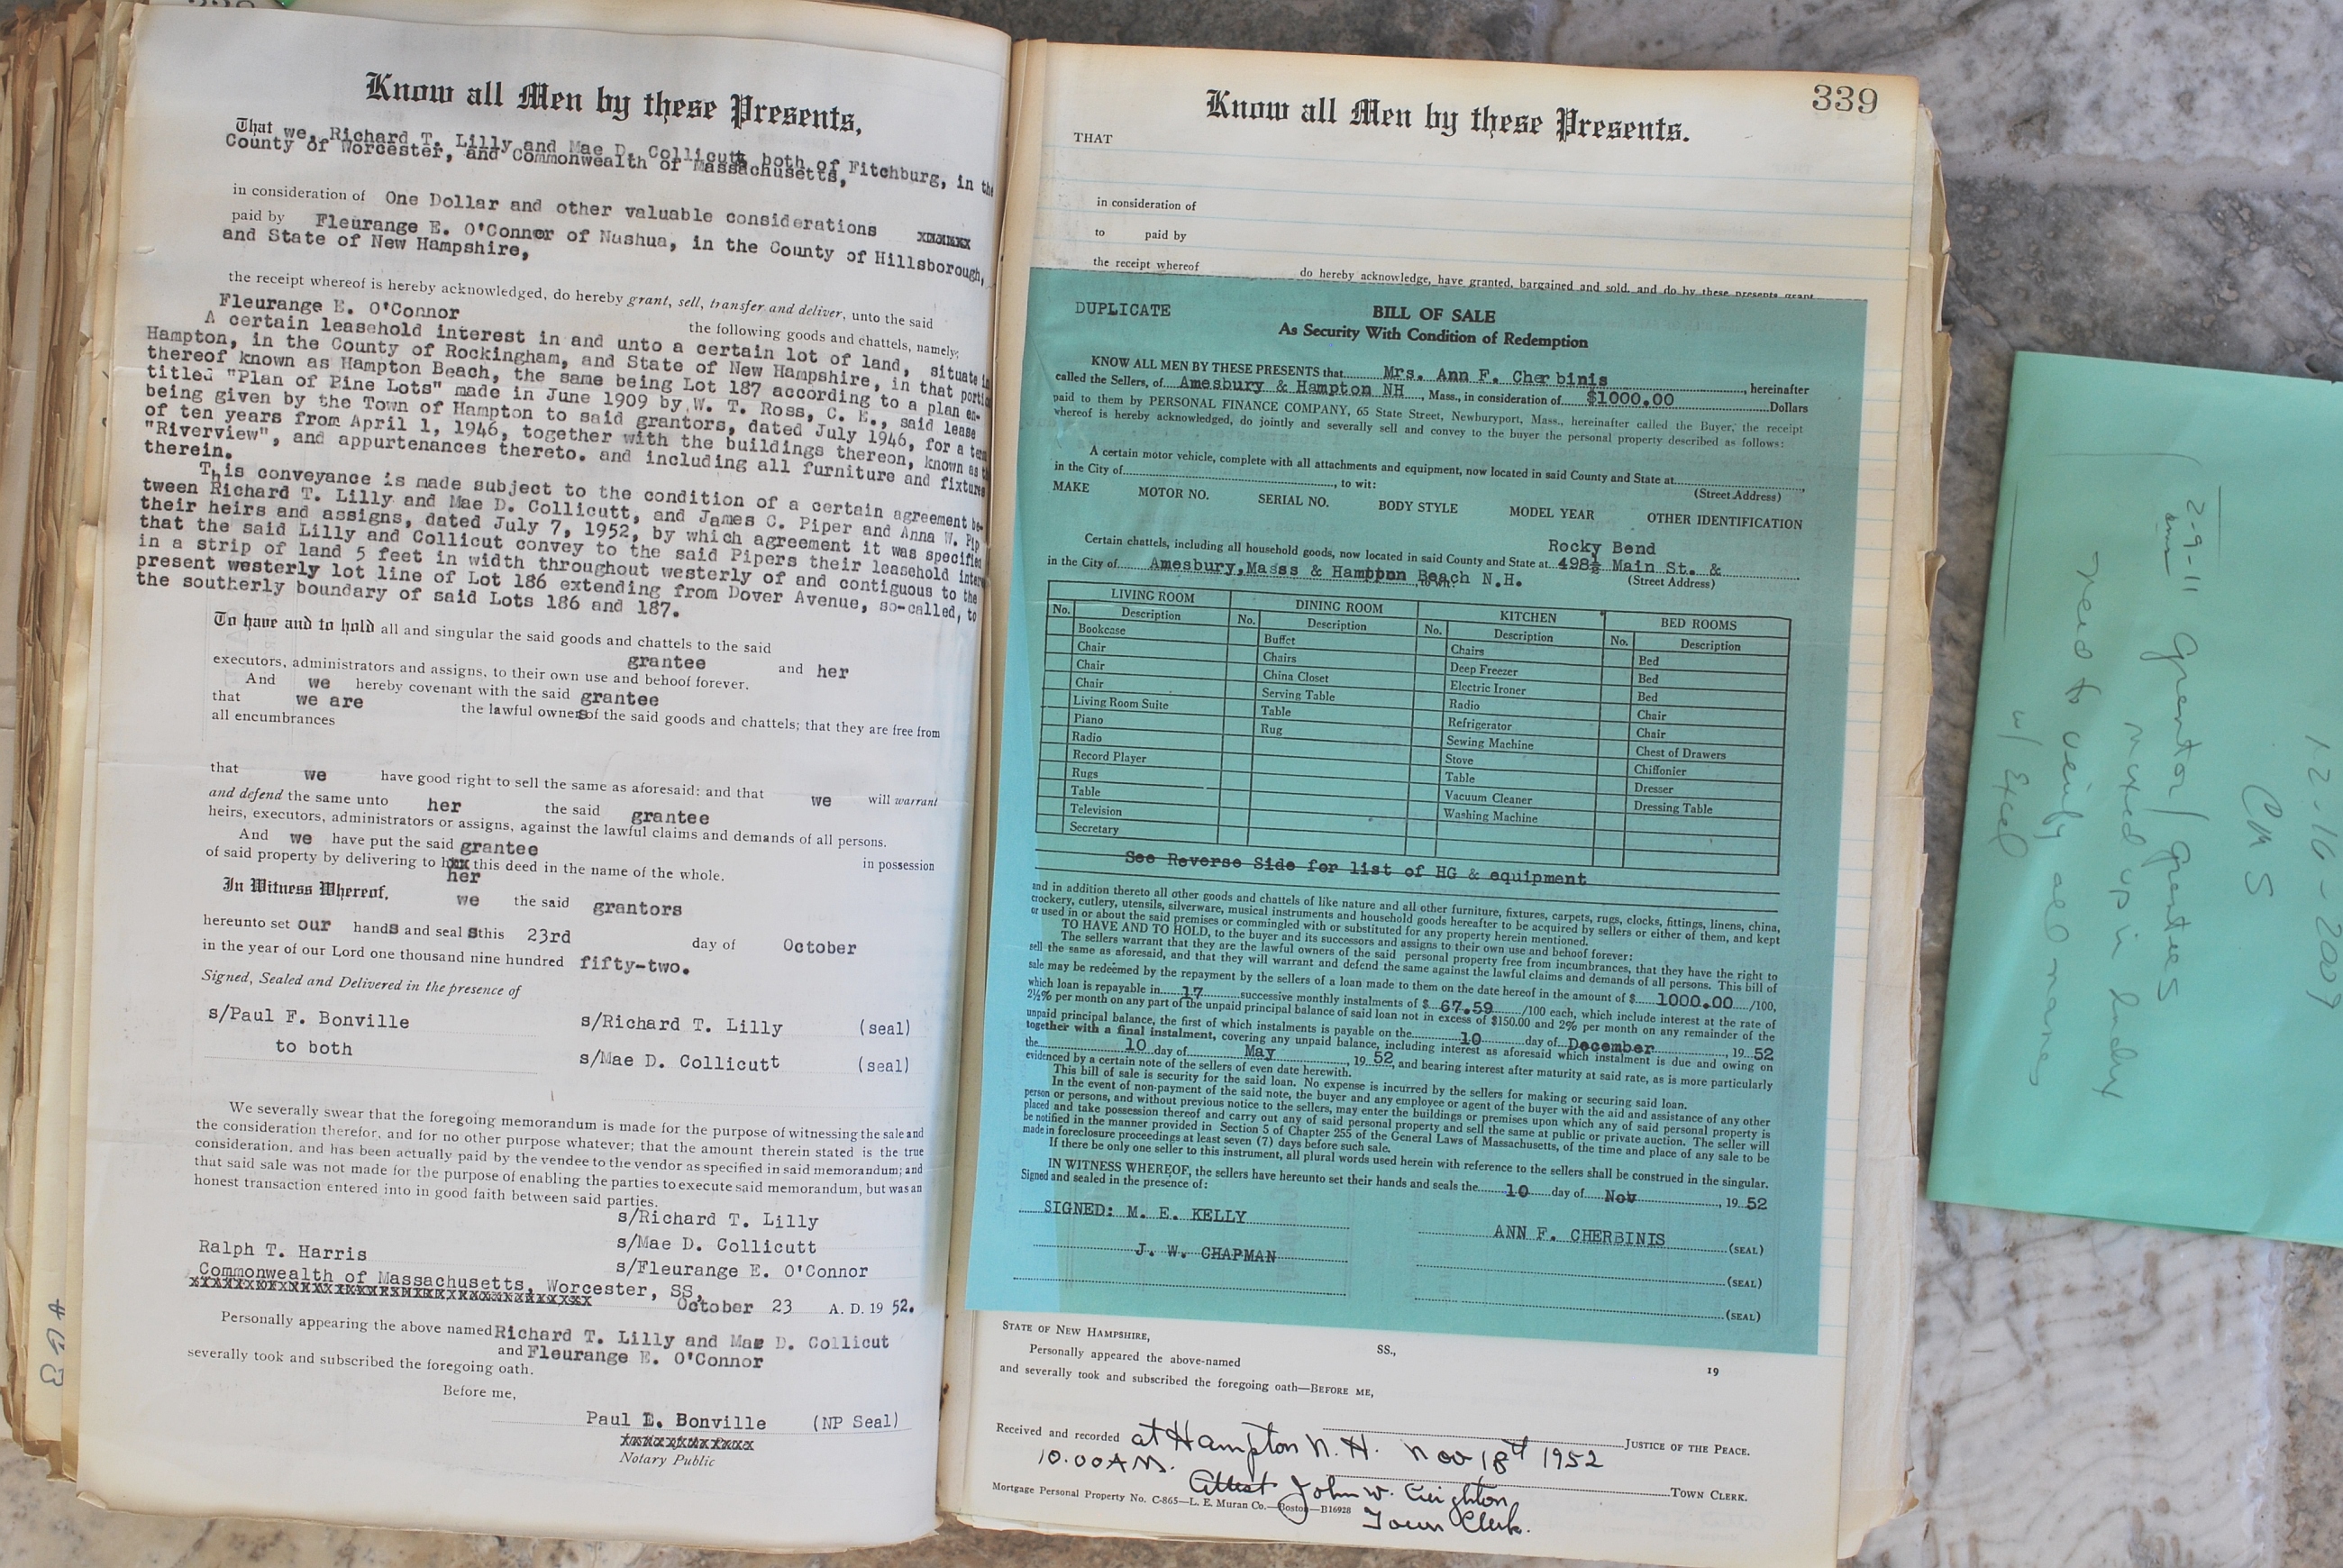 Know all Men by these Presents,
That we, Richard T. Lilly and Mae D. Collicutt both of Fitchburg, in the
County of Worcester, and Commonwealth of Massachusetts,
in consideration of One Dollar and other valuable considerations
paid by Fleurange E. O'Connor of Nashua, in the County of Hillsborough,
and State of New Hampshire,
the receipt whereof is hereby acknowledged, do hereby grant, sell, transfer and deliver, unto the said
Fleurange E. O'Connor the following goods and chattels, namely:
A certain leasehold interest in and unto a certain lot of land, situate in
Hampton, in the County of Rockingham, and State of New Hampshire, in that porti
thereof known as Hampton Beach, the same being Lot 187 according to a plan en-
titled "Plan of Pine Lots" made in June 1909 by W. T. Ross, C. E., said lease
being given by the Town of Hampton to said grantors, dated July 1946, for a term
of ten years from April 1, 1946, together with the buildings thereon, known as t
"Riverview", and appurtenances thereto. and including all furniture and fixtures
therein.
This conveyance is made subject to the condition of a certain agreement be-
tween Richard T. Lilly and Mae D. Collicutt, and James C. Piper and Anna W. Pip
their heirs and assigns, dated July 7, 1952, by which agreement it was specified
that the said Lilly and Collicut convey to the said Pipers their leasehold inter
in a strip of land 5 feet in width throughout westerly of and contiguous to the
present westerly lot line of Lot 186 extending from Dover Avenue, so-called, to
the southerly boundary of said Lots 186 and 187.
To have and to hold all and singular the said goods and chattels to the said
grantee and her
executors, administrators and assigns, to their own use and behoof forever.
And we hereby covenant with the said grantee
that we are the lawful owners of the said goods and chattels; that they are free from
all encumbrances
that we have good right to sell the same as aforesaid; and that we will warrant
and defend the same unto her the said grantee
heirs, executors, administrators or assigns, against the lawful claims and demands of all persons.
And we have put the said grantee in possession
of said property by delivering to hxx this deed in the name of the whole.
her
In Witness Whereof, we the said grantors
hereunto set our hands and seal s this 23rd day of October
in the year of our Lord one thousand nine hundred fifty-two.
Signed, Sealed and Delivered in the presence of
s/Paul F. Bonville s/Richard T. Lilly (seal)
to both s/Mae D. Collicutt (seal)
We severally swear that the foregoing memorandum is made for the purpose of witnessing the sale and
the consideration therefor, and for no other purpose whatever; that the amount therein stated is the true
consideration, and has been actually paid by the vendee to the vendor as specified in said memorandum; and
that said sale was not made for the purpose of enabling the parties to execute said memorandum, but was an
honest transaction entered into in good faith between said parties.
s/Richard T. Lilly
s/Mae D. Collicutt
Ralph T. Harris s/Fleurange E. O'Connor
Commonwealth of Massachusetts, Worcester, SS,
October 23 A. D. 19 52.
Personally appearing the above named Richard T. Lilly and Mae D. Collicut
and Fleurange E. O'Connor
severally took and subscribed the foregoing oath.
Before me,
Paul E. Bonville (NP Seal)
Notary Public
339
Know all Men by these Presents.
THAT
in consideration of
to paid by
the receipt whereof do hereby acknowledge, have granted, bargained and sold, and do by these presents grant
DUPLICATE
BILL OF SALE
As Security With Condition of Redemption
KNOW ALL MEN BY THESE PRESENTS that Mrs. Ann F. Cherbinis, hereinafter
called the Sellers, of Amesbury & Hampton NH, Mass., in consideration of $1000.00 Dollars
paid to them by PERSONAL FINANCE COMPANY, 65 State Street, Newburyport, Mass., hereinafter called the Buyer, the receipt
whereof is hereby acknowledged, do jointly and severally sell and convey to the buyer the personal property described as follows:
A certain motor vehicle, complete with all attachments and equipment, now located in said County and State at
in the City of , to wit: (Street Address)
MAKE MOTOR NO. SERIAL NO. BODY STYLE MODEL YEAR OTHER IDENTIFICATION
Rocky Bend
Certain chattels, including all household goods, now located in said County and State at 498½ Main St. &
in the City of Amesbury, Masss & Hampton Beach N.H. to wit: (Street Address)
LIVING ROOM DINING ROOM KITCHEN BED ROOMS
No. Description No. Description No. Description No. Description
Bookcase Buffet Chairs Bed
Chair Chairs Deep Freezer Bed
Chair China Closet Electric Ironer Bed
Chair Serving Table Radio Chair
Living Room Suite Table Refrigerator Chair
Piano Rug Sewing Machine Chest of Drawers
Radio Stove Chiffonier
Record Player Table Dresser
Rugs Vacuum Cleaner Dressing Table
Table Washing Machine
Television
Secretary
See Reverse Side for list of HG & equipment
and in addition thereto all other goods and chattels of like nature and all other furniture, fixtures, carpets, rugs, clocks, fittings, linens, china,
crockery, cutlery, utensils, silverware, musical instruments and household goods hereafter to be acquired by sellers or either of them, and kept
or used in or about the said premises or commingled with or substituted for any property herein mentioned.
TO HAVE AND TO HOLD, to the buyer and its successors and assigns to their own use and behoof forever:
The sellers warrant that they are the lawful owners of the said personal property free from incumbrances, that they have the right to
sell the same as aforesaid, and that they will warrant and defend the same against the lawful claims and demands of all persons. This bill of
sale may be redeemed by the repayment by the sellers of a loan made to them on the date hereof in the amount of $ 1000.00 /100,
which loan is repayable in 17 successive monthly instalments of $ 67.59 /100 each, which include interest at the rate of
2½% per month on any part of the unpaid principal balance of said loan not in excess of $150.00 and 2% per month on any remainder of the
unpaid principal balance, the first of which instalments is payable on the 10 day of December, 19 52
together with a final instalment, covering any unpaid balance, including interest as aforesaid which instalment is due and owing on
the 10 day of May, 19 52, and bearing interest after maturity at said rate, as is more particularly
evidenced by a certain note of the sellers of even date herewith.
This bill of sale is security for the said loan. No expense is incurred by the sellers for making or securing said loan.
In the event of non-payment of the said note, the buyer and any employee or agent of the buyer with the aid and assistance of any other
person or persons, and without previous notice to the sellers, may enter the buildings or premises upon which any of said personal property is
placed and take possession thereof and carry out any of said personal property and sell the same at public or private auction. The seller will
be notified in the manner provided in Section 5 of Chapter 255 of the General Laws of Massachusetts, of the time and place of any sale to be
made in foreclosure proceedings at least seven (7) days before such sale.
If there be only one seller to this instrument, all plural words used herein with reference to the sellers shall be construed in the singular.
IN WITNESS WHEREOF, the sellers have hereunto set their hands and seals the 10 day of Nov, 19 52
Signed and sealed in the presence of:
SIGNED: M. E. KELLY ANN F. CHERBINIS (SEAL)
J. W. CHAPMAN (SEAL)
(SEAL)
STATE OF NEW HAMPSHIRE, SS.,
Personally appeared the above-named 19
and severally took and subscribed the foregoing oath—BEFORE ME,
JUSTICE OF THE PEACE.
Received and recorded at Hampton N. H. Nov 18th 1952
10.00 A.M.
Attest John W. Creighton TOWN CLERK.
Mortgage Personal Property No. C-865—L. E. Muran Co.—Boston—B16928
Town Clerk.
12-16-2009
CMS
2-9-11 Grantor/grantees
mixed up in binder
need to verify all names
w/ Excel